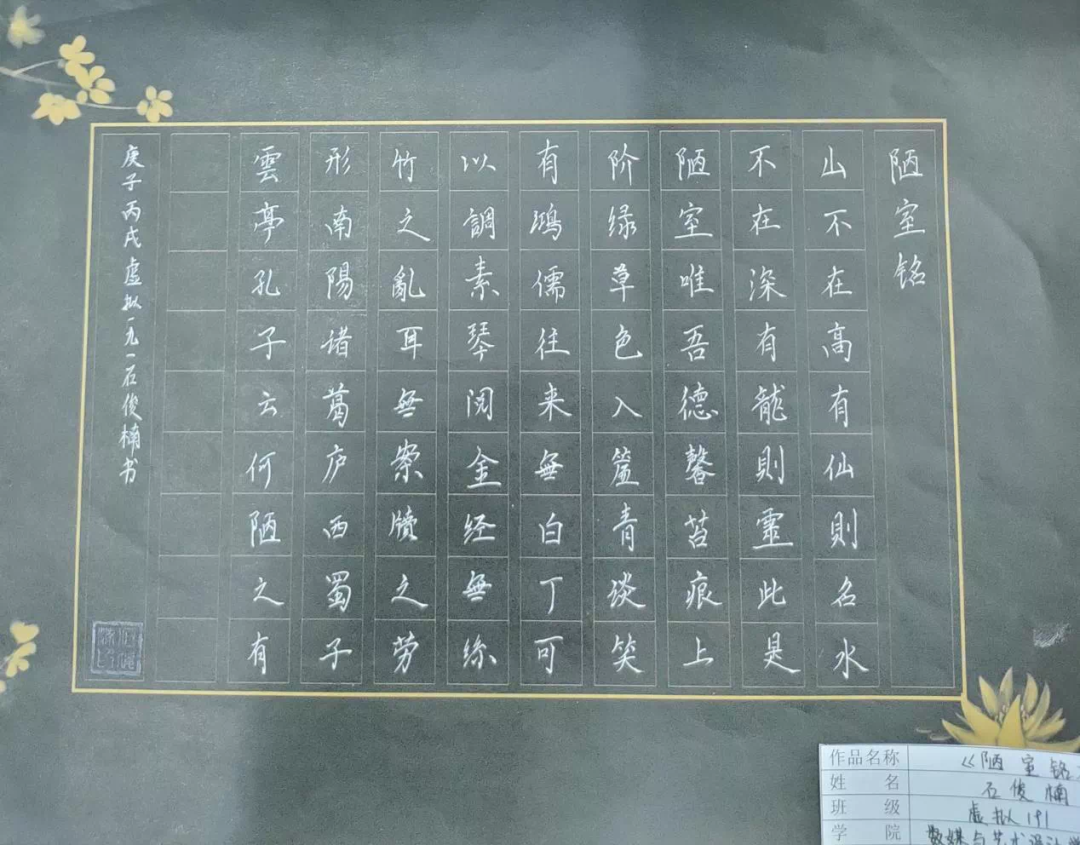 陋室铭
山不在高有仙則名水
不在深有龍則靈此是
陋室唯吾德馨苔痕上
阶绿草色入簾青谈笑
有鴻儒往来無白丁可
以調素琴阅金经無絲
竹之亂耳無案牍之劳
形南陽诸葛庐西蜀子
雲亭孔子云何陋之有
庚子丙戌虚拟一九一石俊楠书
作品名称 《陋室铭
姓名 石俊楠
班级 虚拟191
学院 数媒与艺术设计学